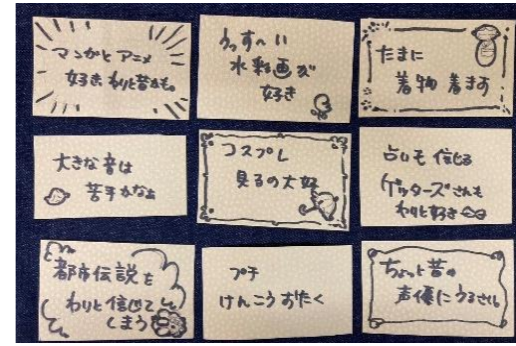 マンガとアニメ
好き わりと昔のも。
うっす〜い
水彩画が
好き
たまに
着物 着ます
大きな音は
苦手かなぁ
コスプレ
見るの大好
占いも 信じる
ゲッターズさんも
わりと好き
都市伝説を
わりと信じて
しまう
プチ
けんこうおたく
ちょっと昔の
声優にうるさい